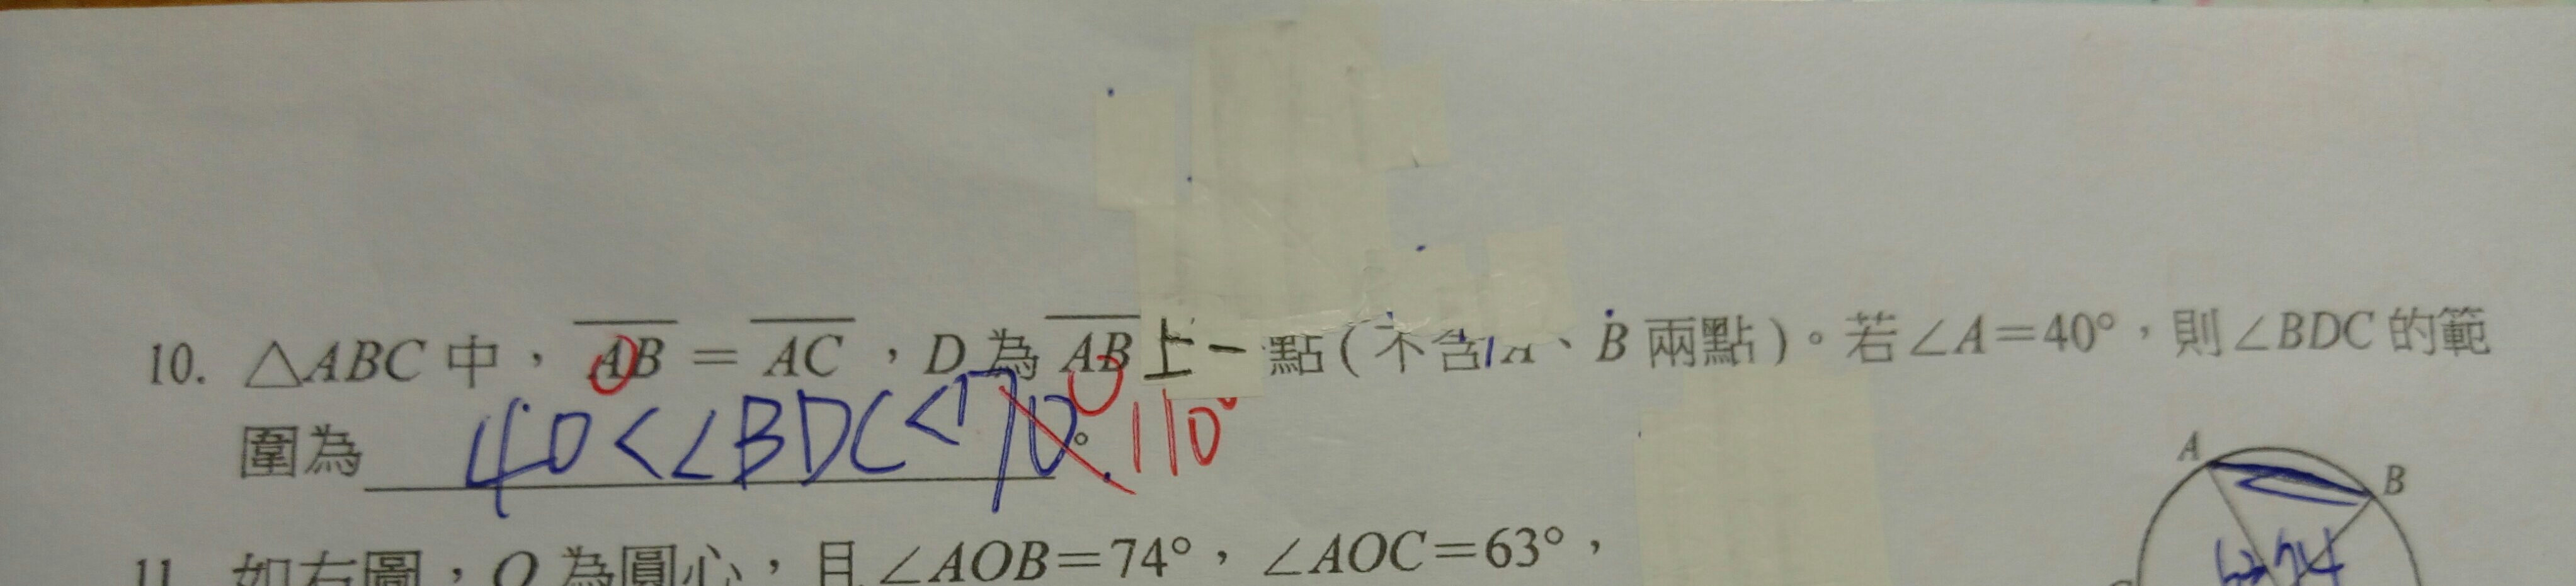 10. △ABC 中，AB = AC，D 為 AB 上一點(不含 A、B 兩點)。若∠A=40°，則∠BDC 的範
圍為 40<∠BDC<170°. 110°
A
B
11. 如右圖，O 為圓心，且∠AOB=74°，∠AOC=63°，
74